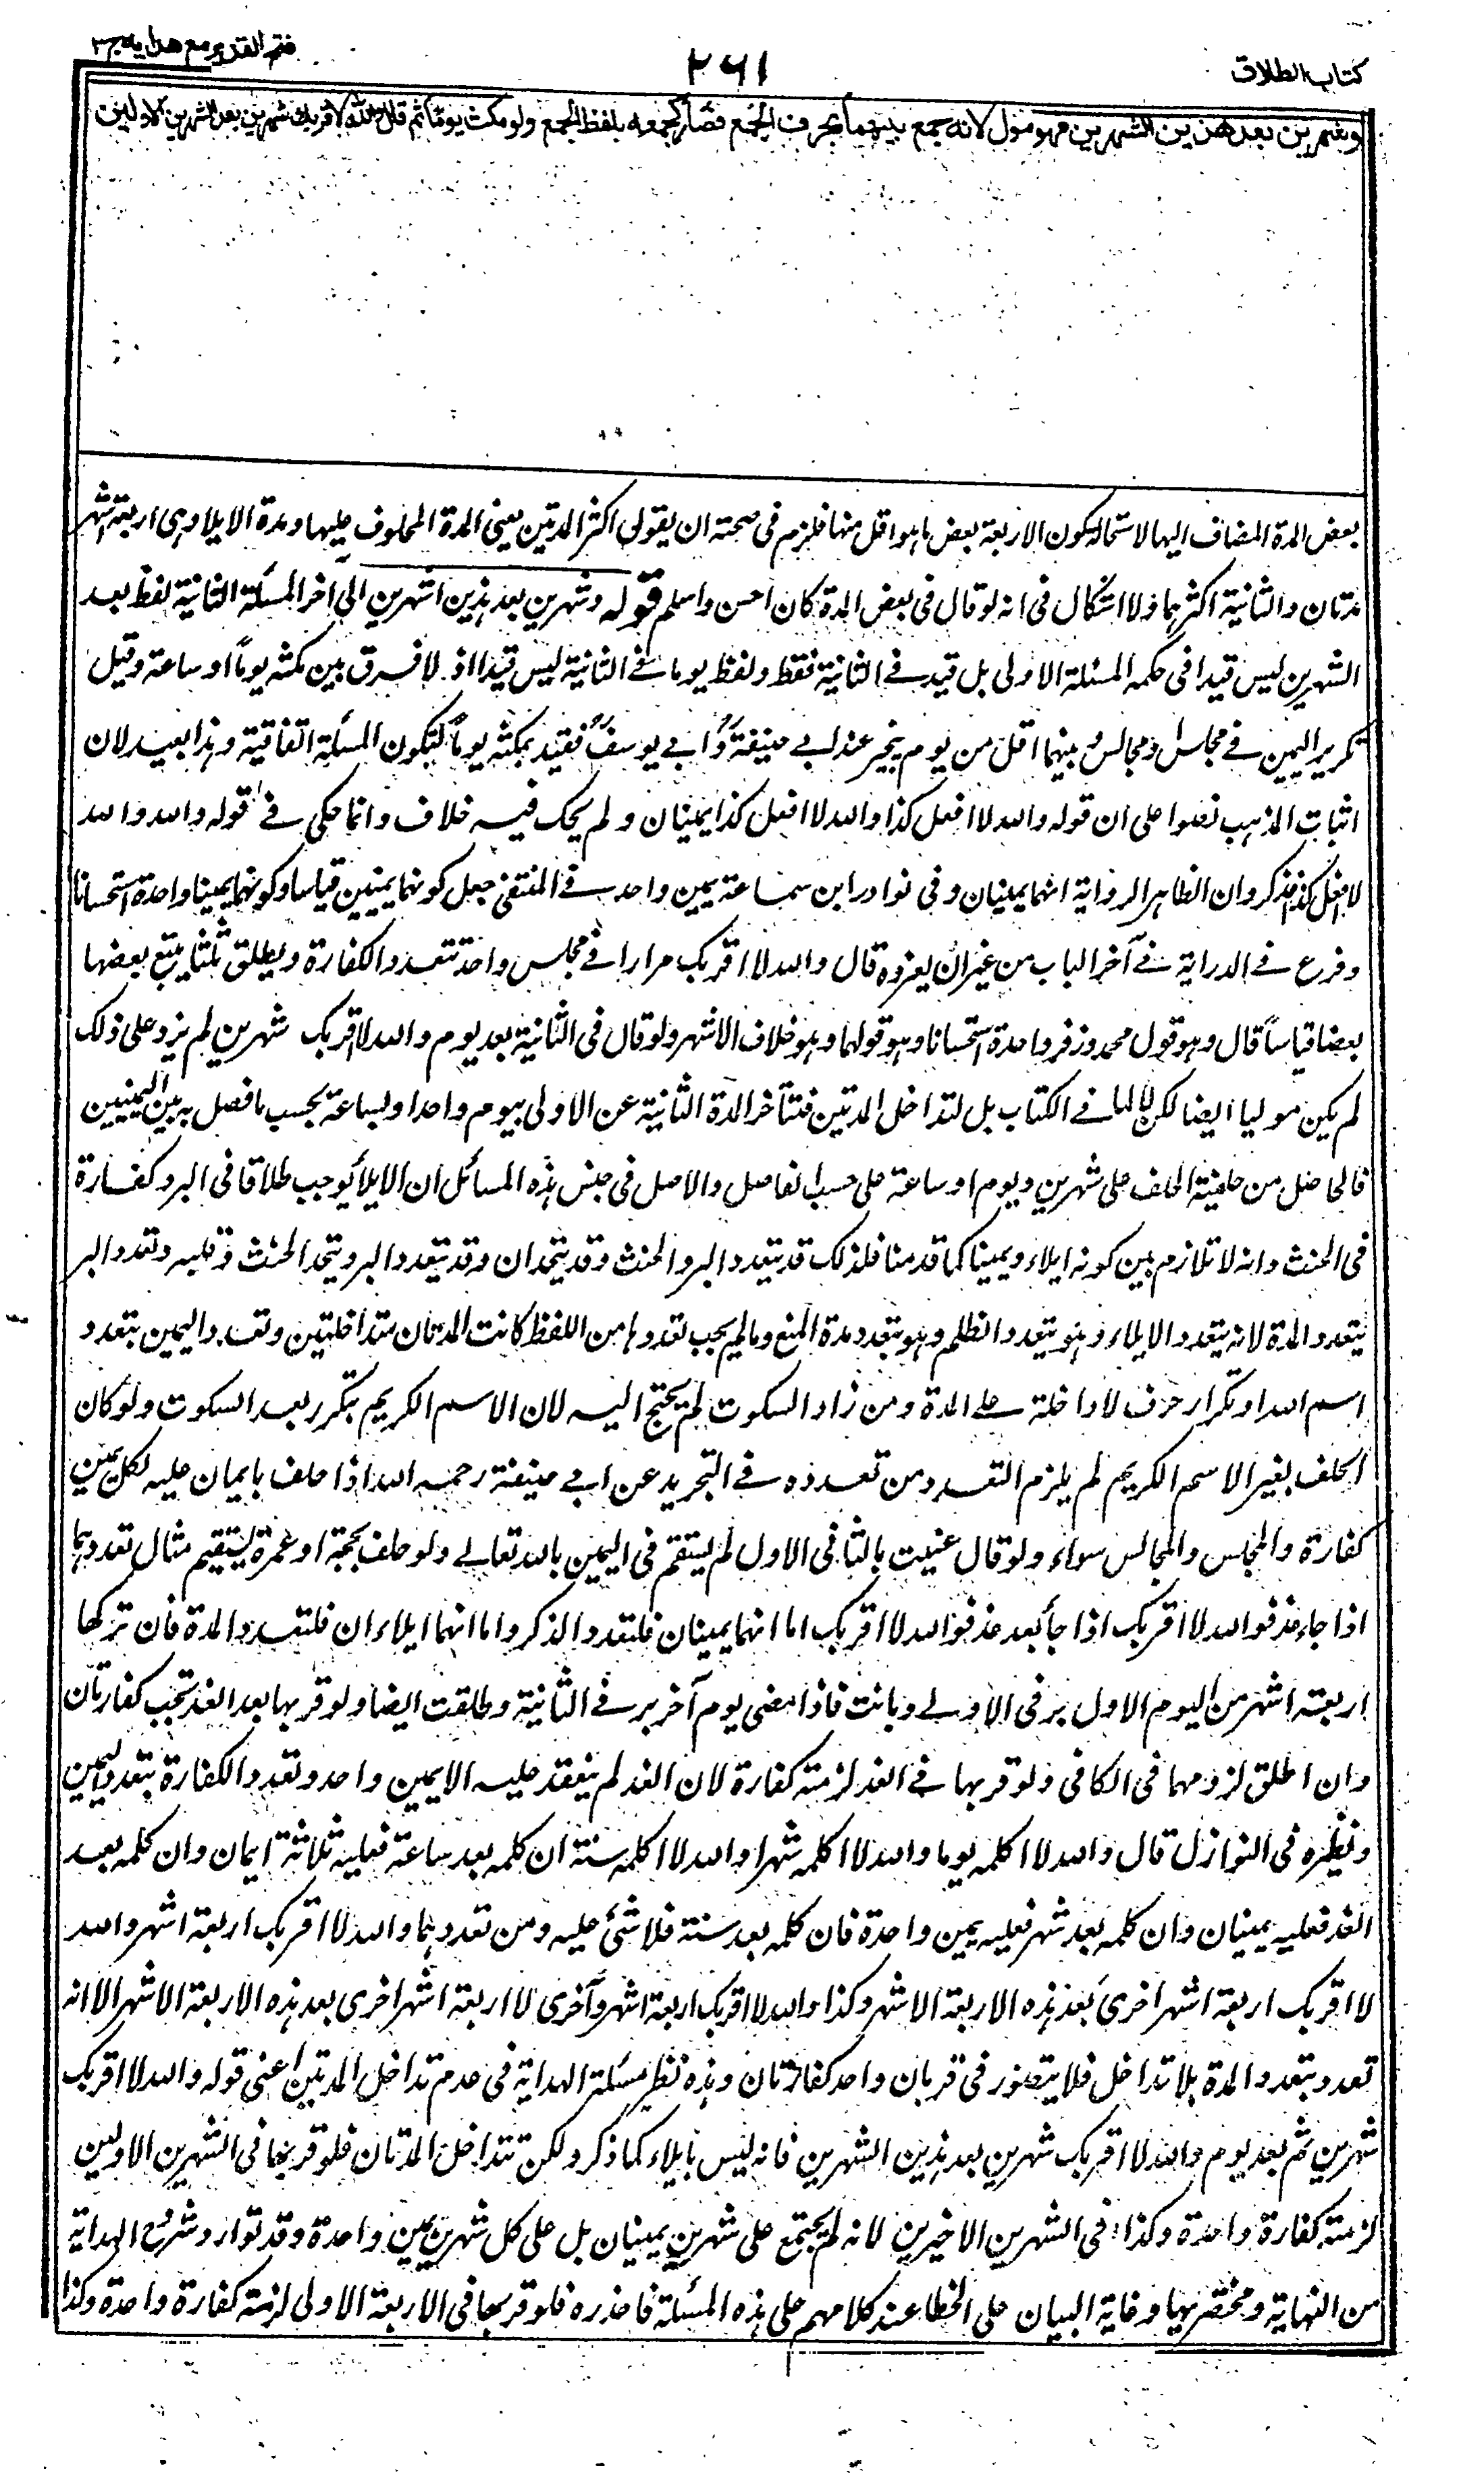 كتاب الطلاق
٢٦١
فتح القدير مع هدايه ج٣
وشهرين بعد هذين الشهرين فهو مول لانه جمع بينهما بحرف الجمع فصار كجمعه بلفظ الجمع ولو مكث يوما ثم قال والله لا اقربك شهرين بعد الشهرين الاولين
بعض المدة المضاف اليها لاستحالة كون الاربعة بعض ما هو اقل منها فلزم فى صحته ان يقول فى اكثر المدتين يعنى المدة المحلوف عليها ومدة الايلاء وهى اربعة اشهر
مدتان والثانية اكثرهما ولا اشكال فى انه لو قال فى بعض المدة كان احسن واسلم قوله وشهرين بعد هذين الشهرين الى آخر المسئلة الثانية لفظ بعد
الشهرين ليس قيدا فى حكمه المسئلة الاولى بل قيد فى الثانية فقط ولفظ يوما فى الثانية ليس قيدا اذ لا فرق بين مكثه يوما او ساعة وقيل
تكرير اليمين فى مجلس ومجالس بينهما اقل من يوم ينجبر عند ابى حنيفة وابى يوسف فقيد بمكثه يوما لتكون المسئلة اتفاقية وهذا بعيد لان
اثبات المذهب نصوا على ان قوله والله لا افعل كذا والله لا افعل كذا يمينان ولم يحك فيه خلاف وانما حكى فى قوله والله والله
لا افعل كذا فذكروا ان الظاهر الرواية انهما يمينان وفى نوادر ابن سماعة يمين واحد فى المنتقى جعل كونهما يمينين قياسا وكونهما يمينا واحدة استحسانا
وفرع فى الدراية فى آخر الباب من غير ان يعزوه قال والله لا اقربك مرارا فى مجلس واحد تتعدد الكفارة ويطلق ثلثا يتبع بعضها
بعضا قياسا قال وهو قول محمد وزفر واحدة استحسانا وهو قولهما وهو خلاف الاشهر ولو قال فى الثانية بعد يوم والله لا اقربك شهرين لم يزد على ذلك
لم يكن موليا ايضا لكن لا لما فى الكتاب بل لتداخل المدتين فتتأخر المدة الثانية عن الاولى بيوم واحد او بساعة بحسب ما فصل به بين اليمينين
فالحاصل من حلفيه الحلف على شهرين ويوم او ساعة على حسب الفاصل والاصل فى جنس هذه المسائل ان الايلاء يوجب طلاقا فى البر وكفارة
فى الحنث وانه لا تلازم بين كونه ايلاء ويمينا كما قدمنا فلذلك قد يتعدد البر والحنث وقد يتحدان وقد يتعدد البر ويتحد الحنث وقلبه وتعدد البر
بتعدد المدة لانه يتعدد الايلاء وهو بتعدد الظلم وهو بتعدد مدة المنع وما لم يجب تعددها من اللفظ كانت المدتان متداخلتين وتعدد اليمين بتعدد
اسم الله او تكرار حرف لا داخلة على المدة ومن زاد السكوت لم يحتج اليه لان الاسم الكريم يتكرر بعد السكوت ولو كان
الحلف بغير الاسم الكريم لم يلزم التعدد من تعدده فى التجريد عن ابى حنيفة رحمه الله اذا حلف بايمان عليه لكل يمين
كفارة والمجلس والمجالس سواء ولو قال عنيت بالثانى الاول لم يستقم فى اليمين بالله تعالى ولو حلف بحجة او عمرة يستقيم مثال تعددهما
اذا جاء غد فوالله لا اقربك اذا جاء بعد غد فوالله لا اقربك اما انهما يمينان فلتعدد الذكر واما انهما ايلاءان فلتعدد المدة فان تركها
اربعة اشهر من اليوم الاول بر فى الاولى وبانت فاذا مضى يوم آخر بر فى الثانية وطلقت ايضا ولو قربها بعد الغد تجب كفارتان
وان اطلق لزومهما فى الكافى ولو قربها فى الغد لزمته كفارة لان الغد لم ينعقد عليه الا يمين واحد وتعدد الكفارة بتعدد اليمين
ونظيره فى النوازل قال والله لا اكلمه يوما والله لا اكلمه شهرا والله لا اكلمه سنة ان كلمه بعد ساعة فعليه ثلاثة ايمان وان كلمه بعد
الغد فعليه يمينان وان كلمه بعد شهر فعليه يمين واحدة فان كلمه بعد سنة فلا شئ عليه ومن تعددهما والله لا اقربك اربعة اشهر والله
لا اقربك اربعة اشهر اخرى بعد هذه الاربعة الاشهر وكذا والله لا اقربك اربعة اشهر وآخرى لا اربعة اشهر اخرى بعد هذه الاربعة الاشهر الا انه
تعدد بتعدد المدة بلا تداخل فلا يتصور فى قربان واحد كفارتان وهذه نظير مسئلة الهداية فى عدم تداخل المدتين اعنى قوله والله لا اقربك
شهرين ثم بعد يوم والله لا اقربك شهرين بعد هذين الشهرين فانه ليس بايلاء كما ذكر ولكن تتداخل المدتان فلو قربها فى الشهرين الاولين
لزمته كفارة واحدة وكذا فى الشهرين الاخيرين لانه لم يجتمع على شهرين يمينان بل على كل شهرين يمين واحدة وقد توارد شروح الهداية
من النهاية ومختصريها وغاية البيان على الخطا عند كلامهم على هذه المسئلة فاحذره فلو قربها فى الاربعة الاولى لزمته كفارة واحدة وكذا